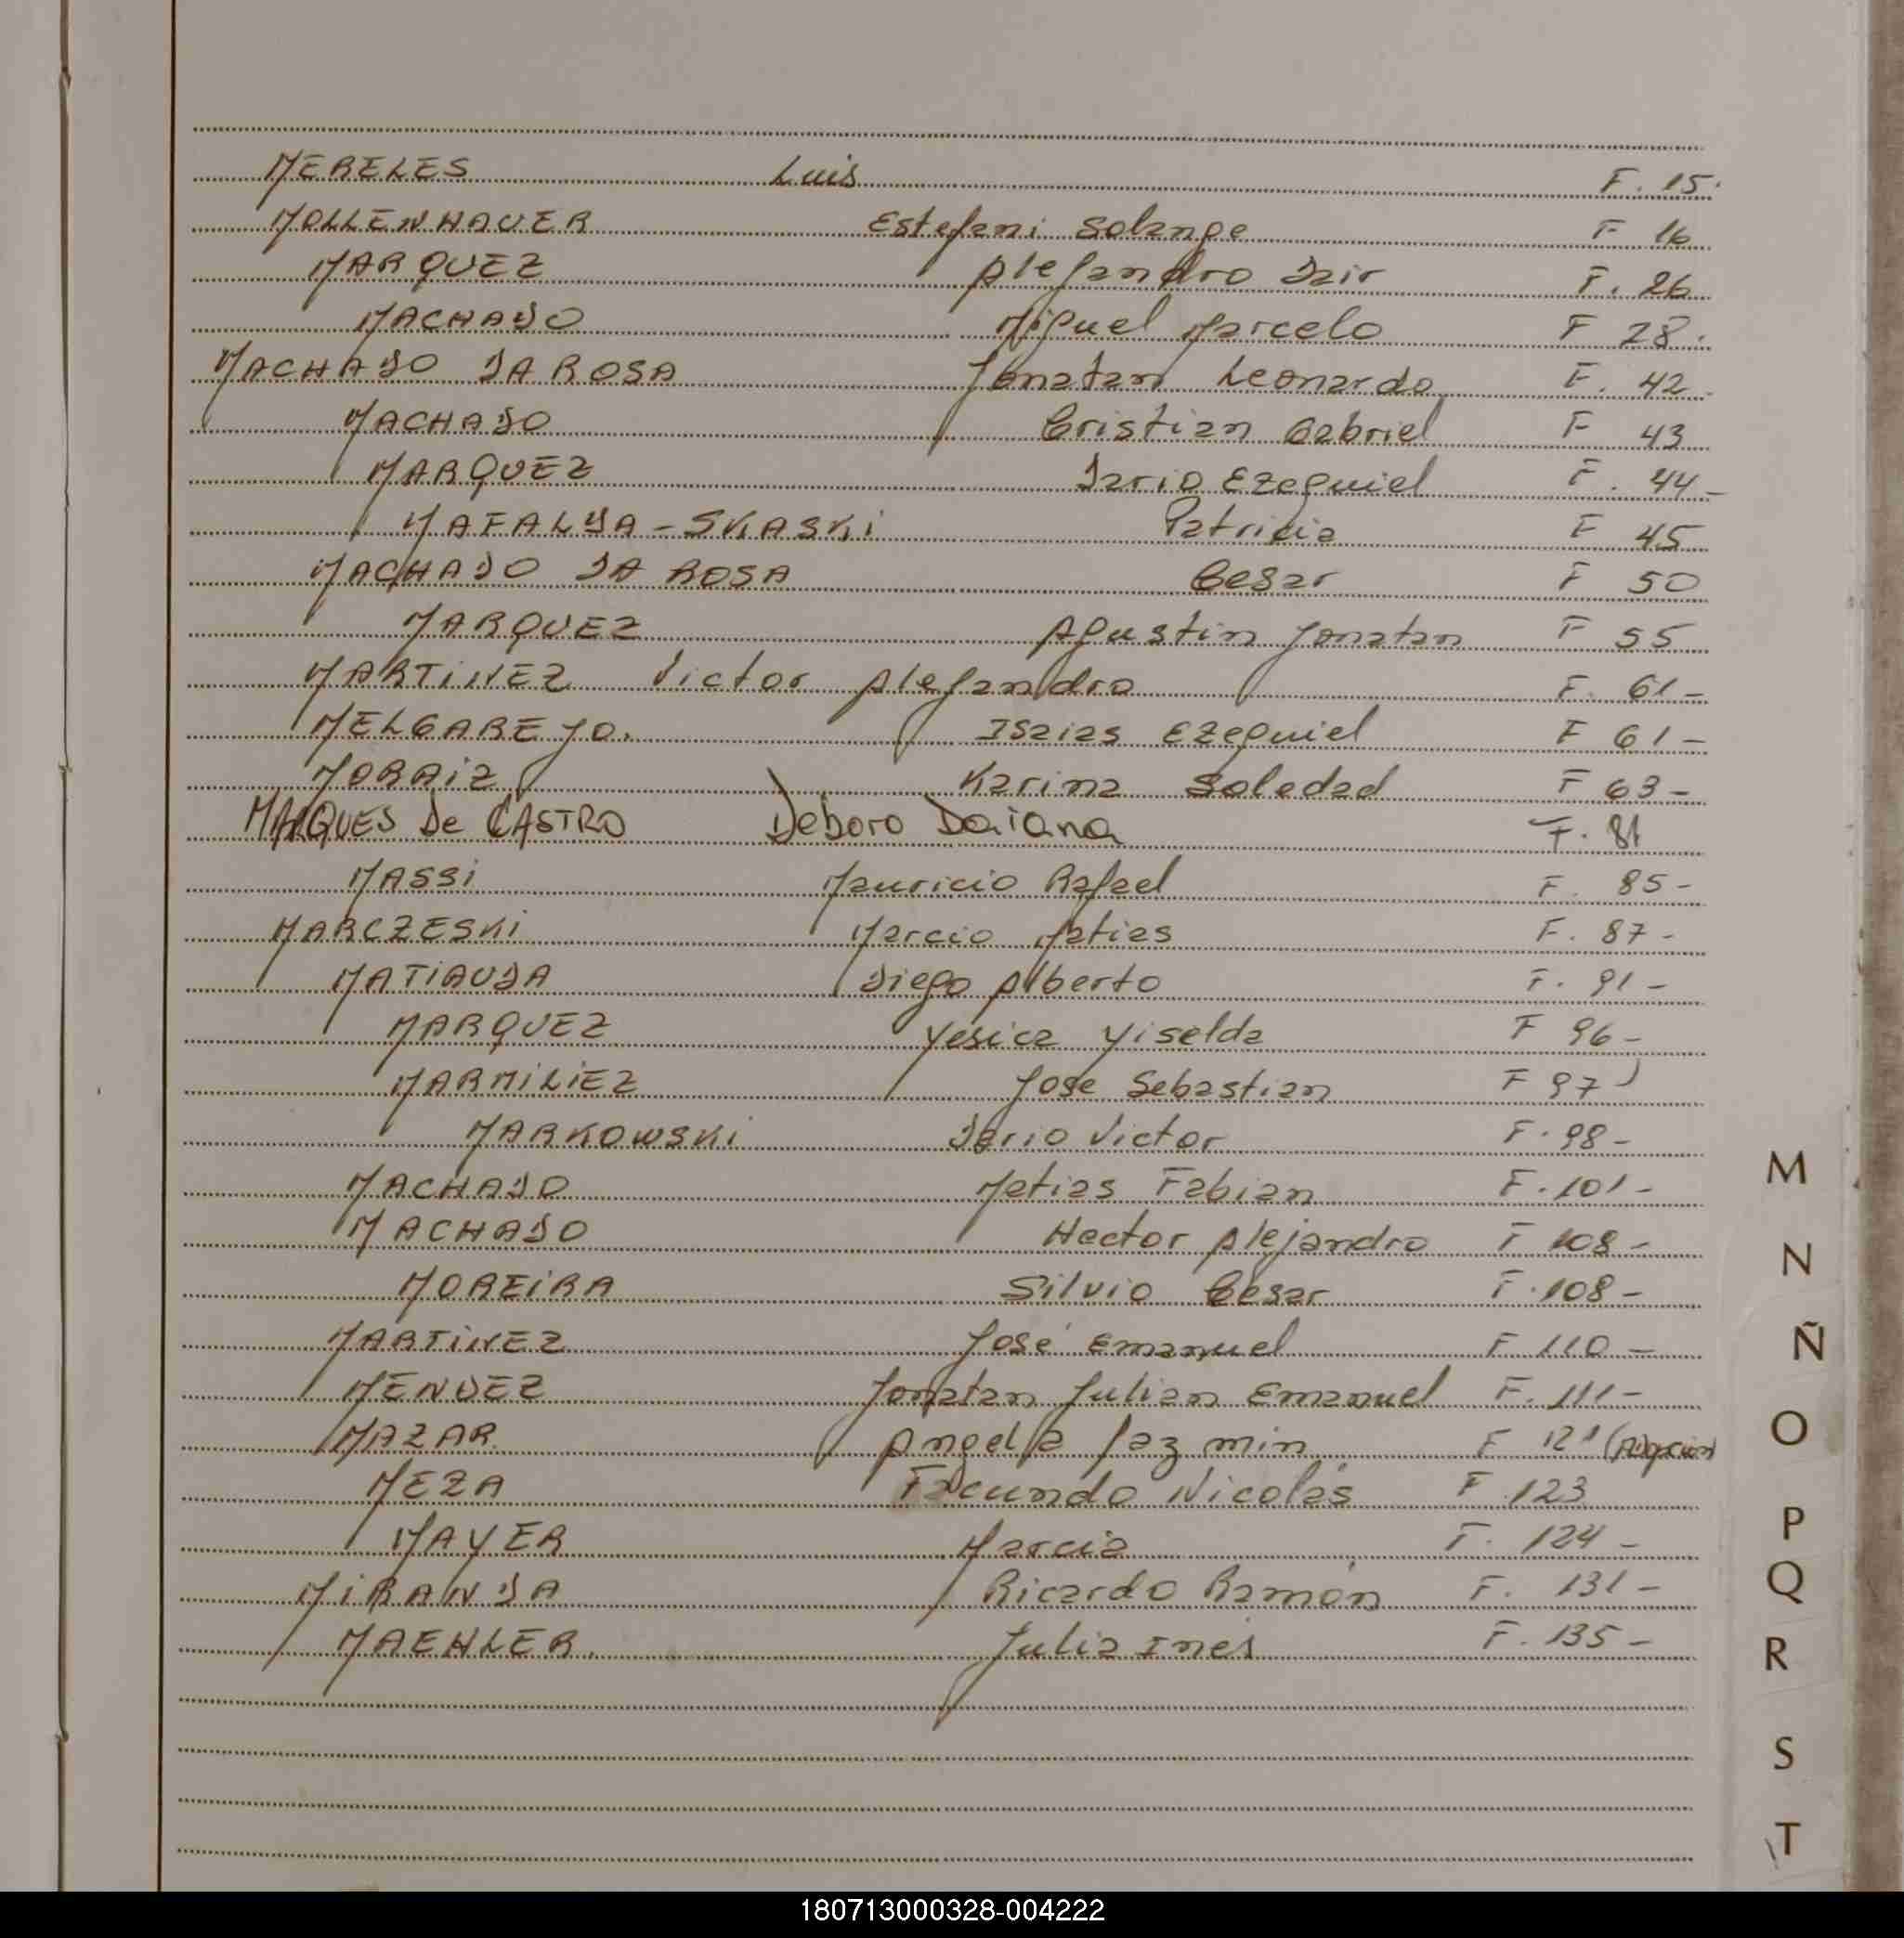 MERELES Luis F. 15.
MOLLENHAUER Estefani Solange F 16
MARQUEZ Alejandro Jair F. 26
MACHADO Miguel Marcelo F 28.
MACHADO DA ROSA Jonatan Leonardo F. 42
MACHADO Cristian Gabriel F 43
MARQUEZ Dario Ezequiel F. 44-
MAFALDA-SKASKi Patricia F 45
MACHADO DA ROSA Cesar F 50
MARQUEZ Agustin Jonatan F 55
MARTiNEZ Victor Alejandro F. 61-
MELGAREJO. Isaias Ezequiel F 61-
MORAiZ Karina Soledad F 63-
MARQUES De CASTRO Deboro Daiana F. 81
MASSi Mauricio Rafael F. 85-
MARCZESKi Marcio Matias F. 87-
MATiAUDA Diego Alberto F. 91-
MARQUEZ Yésica Yiselda F 96-
MARMiLiEZ Jose Sebastian F 97
MARKOWSKi Dario Victor F. 98-
MACHADO Matias Fabian F. 101-
MACHADO Hector Alejandro F 108-
MOREiRA Silvio César F. 108-
MARTiNEZ José Emanuel F 110-
MENDEZ Jonatan Julian Emanuel F. 111-
MAZAR Angela Jazmin F 121 (Adopción)
MEZA Facundo Nicolás F 123
MAYER Marcia F. 124-
MiRANDA Ricardo Ramón F. 131-
MAEHLER. Julia Inés F. 135-
M
N
Ñ
O
P
Q
R
S
T
180713000328-004222